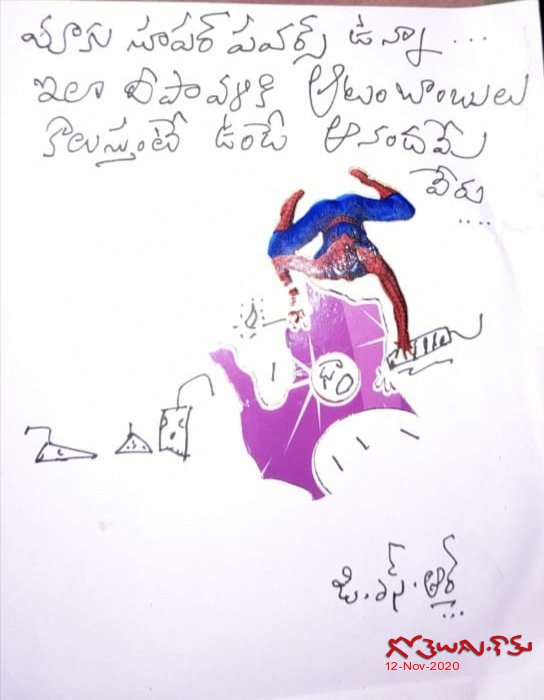 మాకు సూపర్ పవర్స్ ఉన్నా ...
ఇలా దీపావళికి ఆటంబాంబులు
కాలుస్తుంటే ఉండే ఆనందమే
వేరు
....
ఢాం
జి.ఎస్.ఆర్
...
గోతెలుగు.కామ్
12-Nov-2020